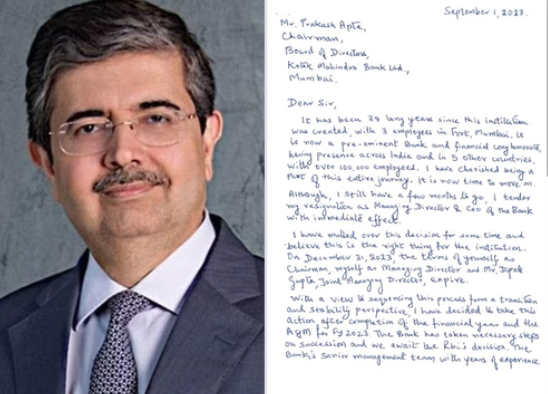 September 1, 2023.
Mr. Prakash Apte,
Chairman,
Board of Directors,
Kotak Mahindra Bank Ltd.,
Mumbai.
Dear Sir,
It has been 38 long years since this institution
was created, with 3 employees in Fort, Mumbai. It
is now a pre-eminent Bank and financial conglomerate,
having presence across India and in 5 other countries,
with over 100,000 employees. I have cherished being a
part of this entire journey. It is now time to move on.
Although, I still have a few months to go, I tender
my resignation as Managing Director & CEO of the Bank
with immediate effect.
I have mulled over this decision for some time and
believe this is the right thing for the institution.
On December 31, 2023, the terms of yourself as
Chairman, myself as Managing Director and Mr. Dipak
Gupta, Joint Managing Director, expire.
With a view to sequencing this process from a transition
and stability perspective, I have decided to take this
action after completion of the financial year and the
AGM for FY2023. The Bank has taken necessary steps
on succession and we await the RBI's decision. The
Bank's senior management team with years of experience